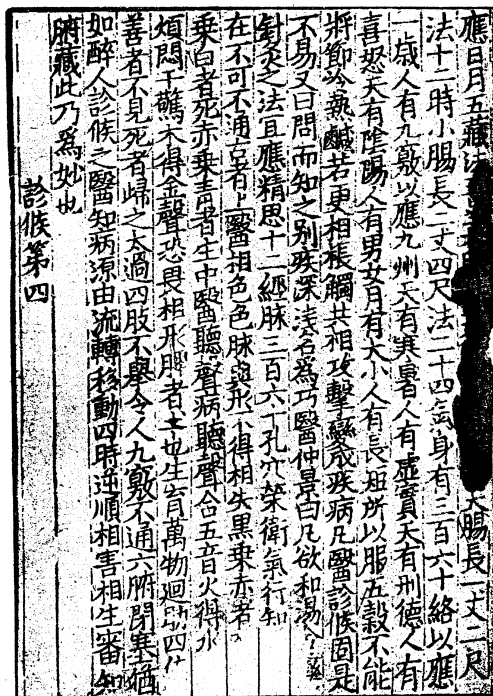 應日月五藏法 大腸長一丈二尺
法十二時小腸長二丈四尺法二十四氣身有三百六十絡以應
一歲人有九竅以應九州天有寒暑人有虛實天有刑德人有
喜怒天有陰陽人有男女月有大小人有長短所以服五穀不能
將節冷熱鹹苦更相棖觸共相攻擊變成疾病凡醫診候固是
不易又曰問而知之别疾深淺名爲巧醫仲景曰凡欲和湯合
針灸之法且應精思十二經脉三百六十孔穴榮衛氣行知
在不可不通古者上醫相色色脉與形不得相失黑乗赤者
乗白者死赤乗青者生中醫聽聲病聽聲合五音火得水
煩悶干驚木得金聲恐畏相形脾者土也生育萬物廻助四
善者不見死者歸之太過四肢不舉令人九竅不通六腑閉塞猶
如醉人診候之醫知病源由流轉移動四時逆順相害相生審知
腑藏此乃爲妙也
診候第四